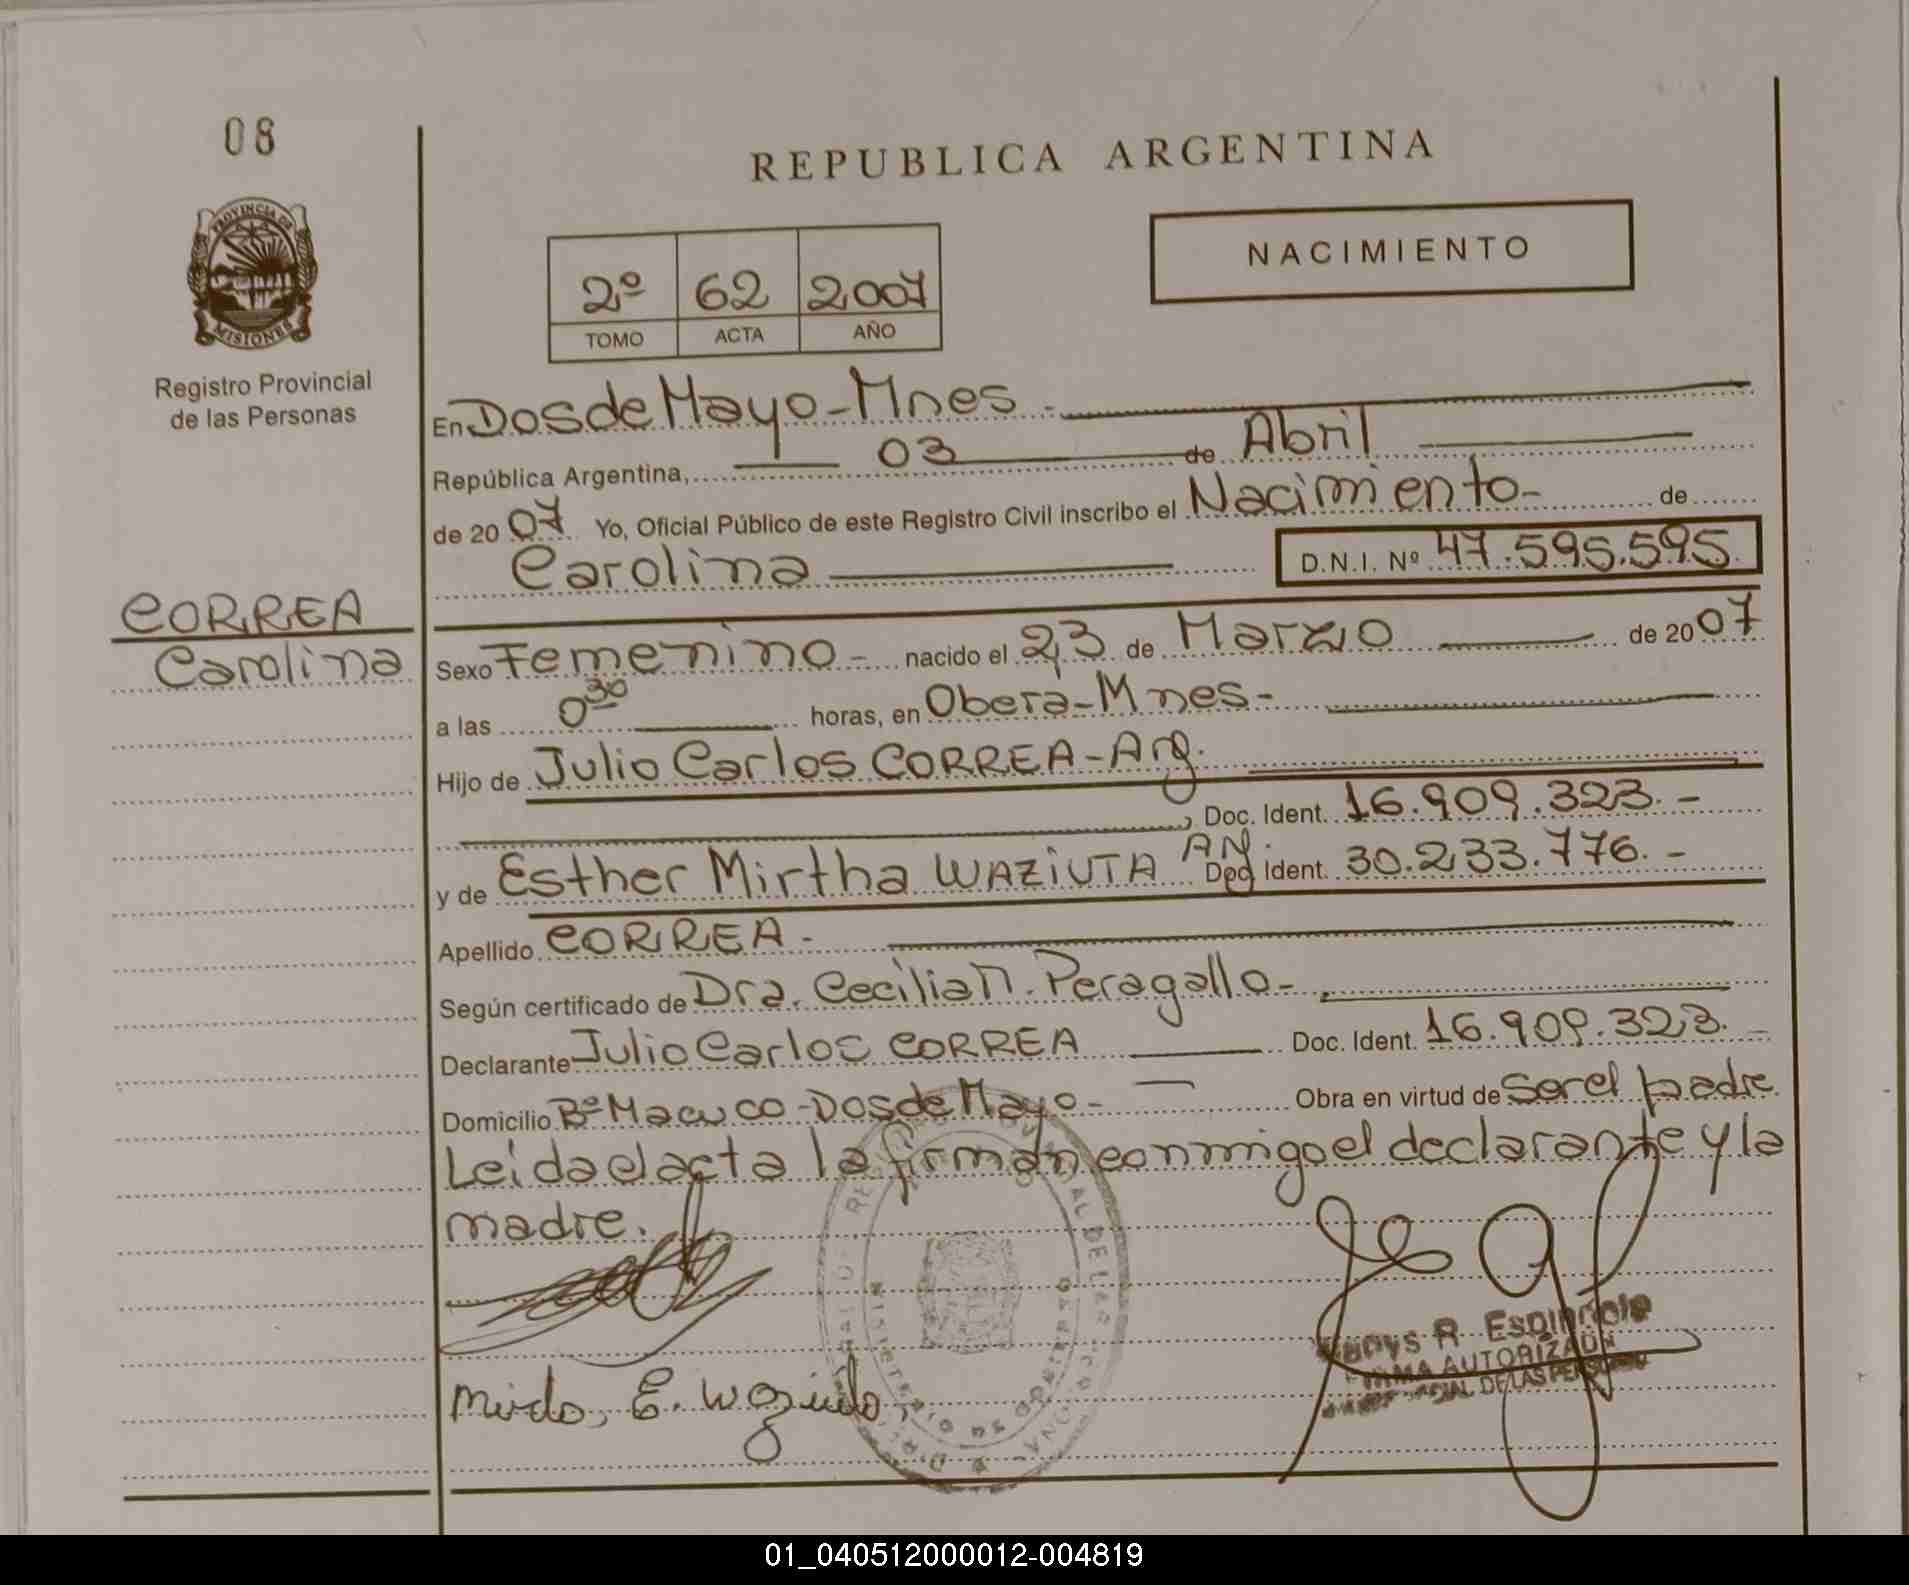 08
REPUBLICA ARGENTINA
PROVINCIA DE
MISIONES
Registro Provincial
de las Personas
2º 62 2007
TOMO ACTA AÑO
NACIMIENTO
En Dos de Mayo - Mnes -
República Argentina, 03 de Abril
de 2007 Yo, Oficial Público de este Registro Civil inscribo el Nacimiento - de
Carolina D.N.I. Nº 47.595.595
CORREA
Carolina
Sexo Femenino - nacido el 23 de Marzo de 2007
a las 0 30 horas, en Obera - Mnes -
Hijo de Julio Carlos CORREA - Arg.
, Doc. Ident. 16.909.323. -
y de Esther Mirtha WAZIUTA Doc. Ident. 30.233.776. -
Apellido CORREA -
Según certificado de Dra. Cecilia N. Peragallo -
Declarante Julio Carlos CORREA Doc. Ident. 16.909.323. -
Domicilio Bº Macuco - Dos de Mayo - Obra en virtud de Ser el padre
Leida el acta la firman conmigo el declarante y la
madre.
R. Espindola
FIRMA AUTORIZADA
DE LAS
01_040512000012-004819